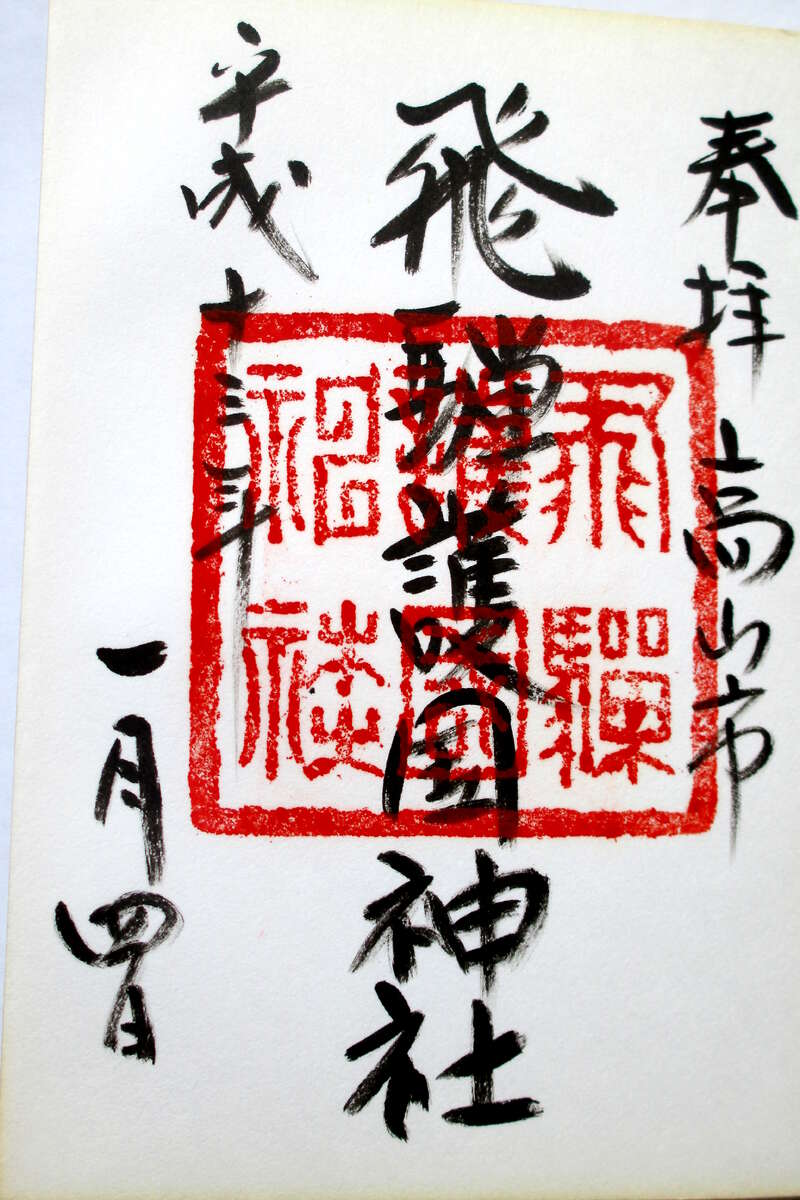 奉拝 高山市
飛騨護国神社
平成十三年
一月四日
飛驒
護國
神社